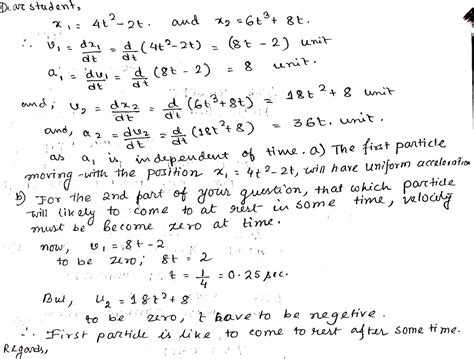 Dear student,
x₁ = 4t²-2t. and x₂ = 6t³ + 8t.
∴ v₁ = dx₁/dt = d/dt (4t²-2t) = (8t - 2) unit
a₁ = dv₁/dt = d/dt (8t - 2) = 8 unit.
and, v₂ = dx₂/dt = d/dt (6t³+8t) = 18t²+8 unit
and, a₂ = dv₂/dt = d/dt (18t²+8) = 36t. unit.
as a₁ is independent of time. a) The first particle
moving with the position x₁ = 4t²-2t, will have uniform acceleration
b) For the 2nd part of your question, that which particle
will likely to come to at rest in some time, velocity
must be become zero at time.
now, v₁ = 8t-2
to be zero; 8t = 2
∴ t = 1/4 = 0.25 sec.
But, v₂ = 18t²+8
to be zero, t have to be negetive.
∴ First particle is like to come to rest after some time.
Regards,